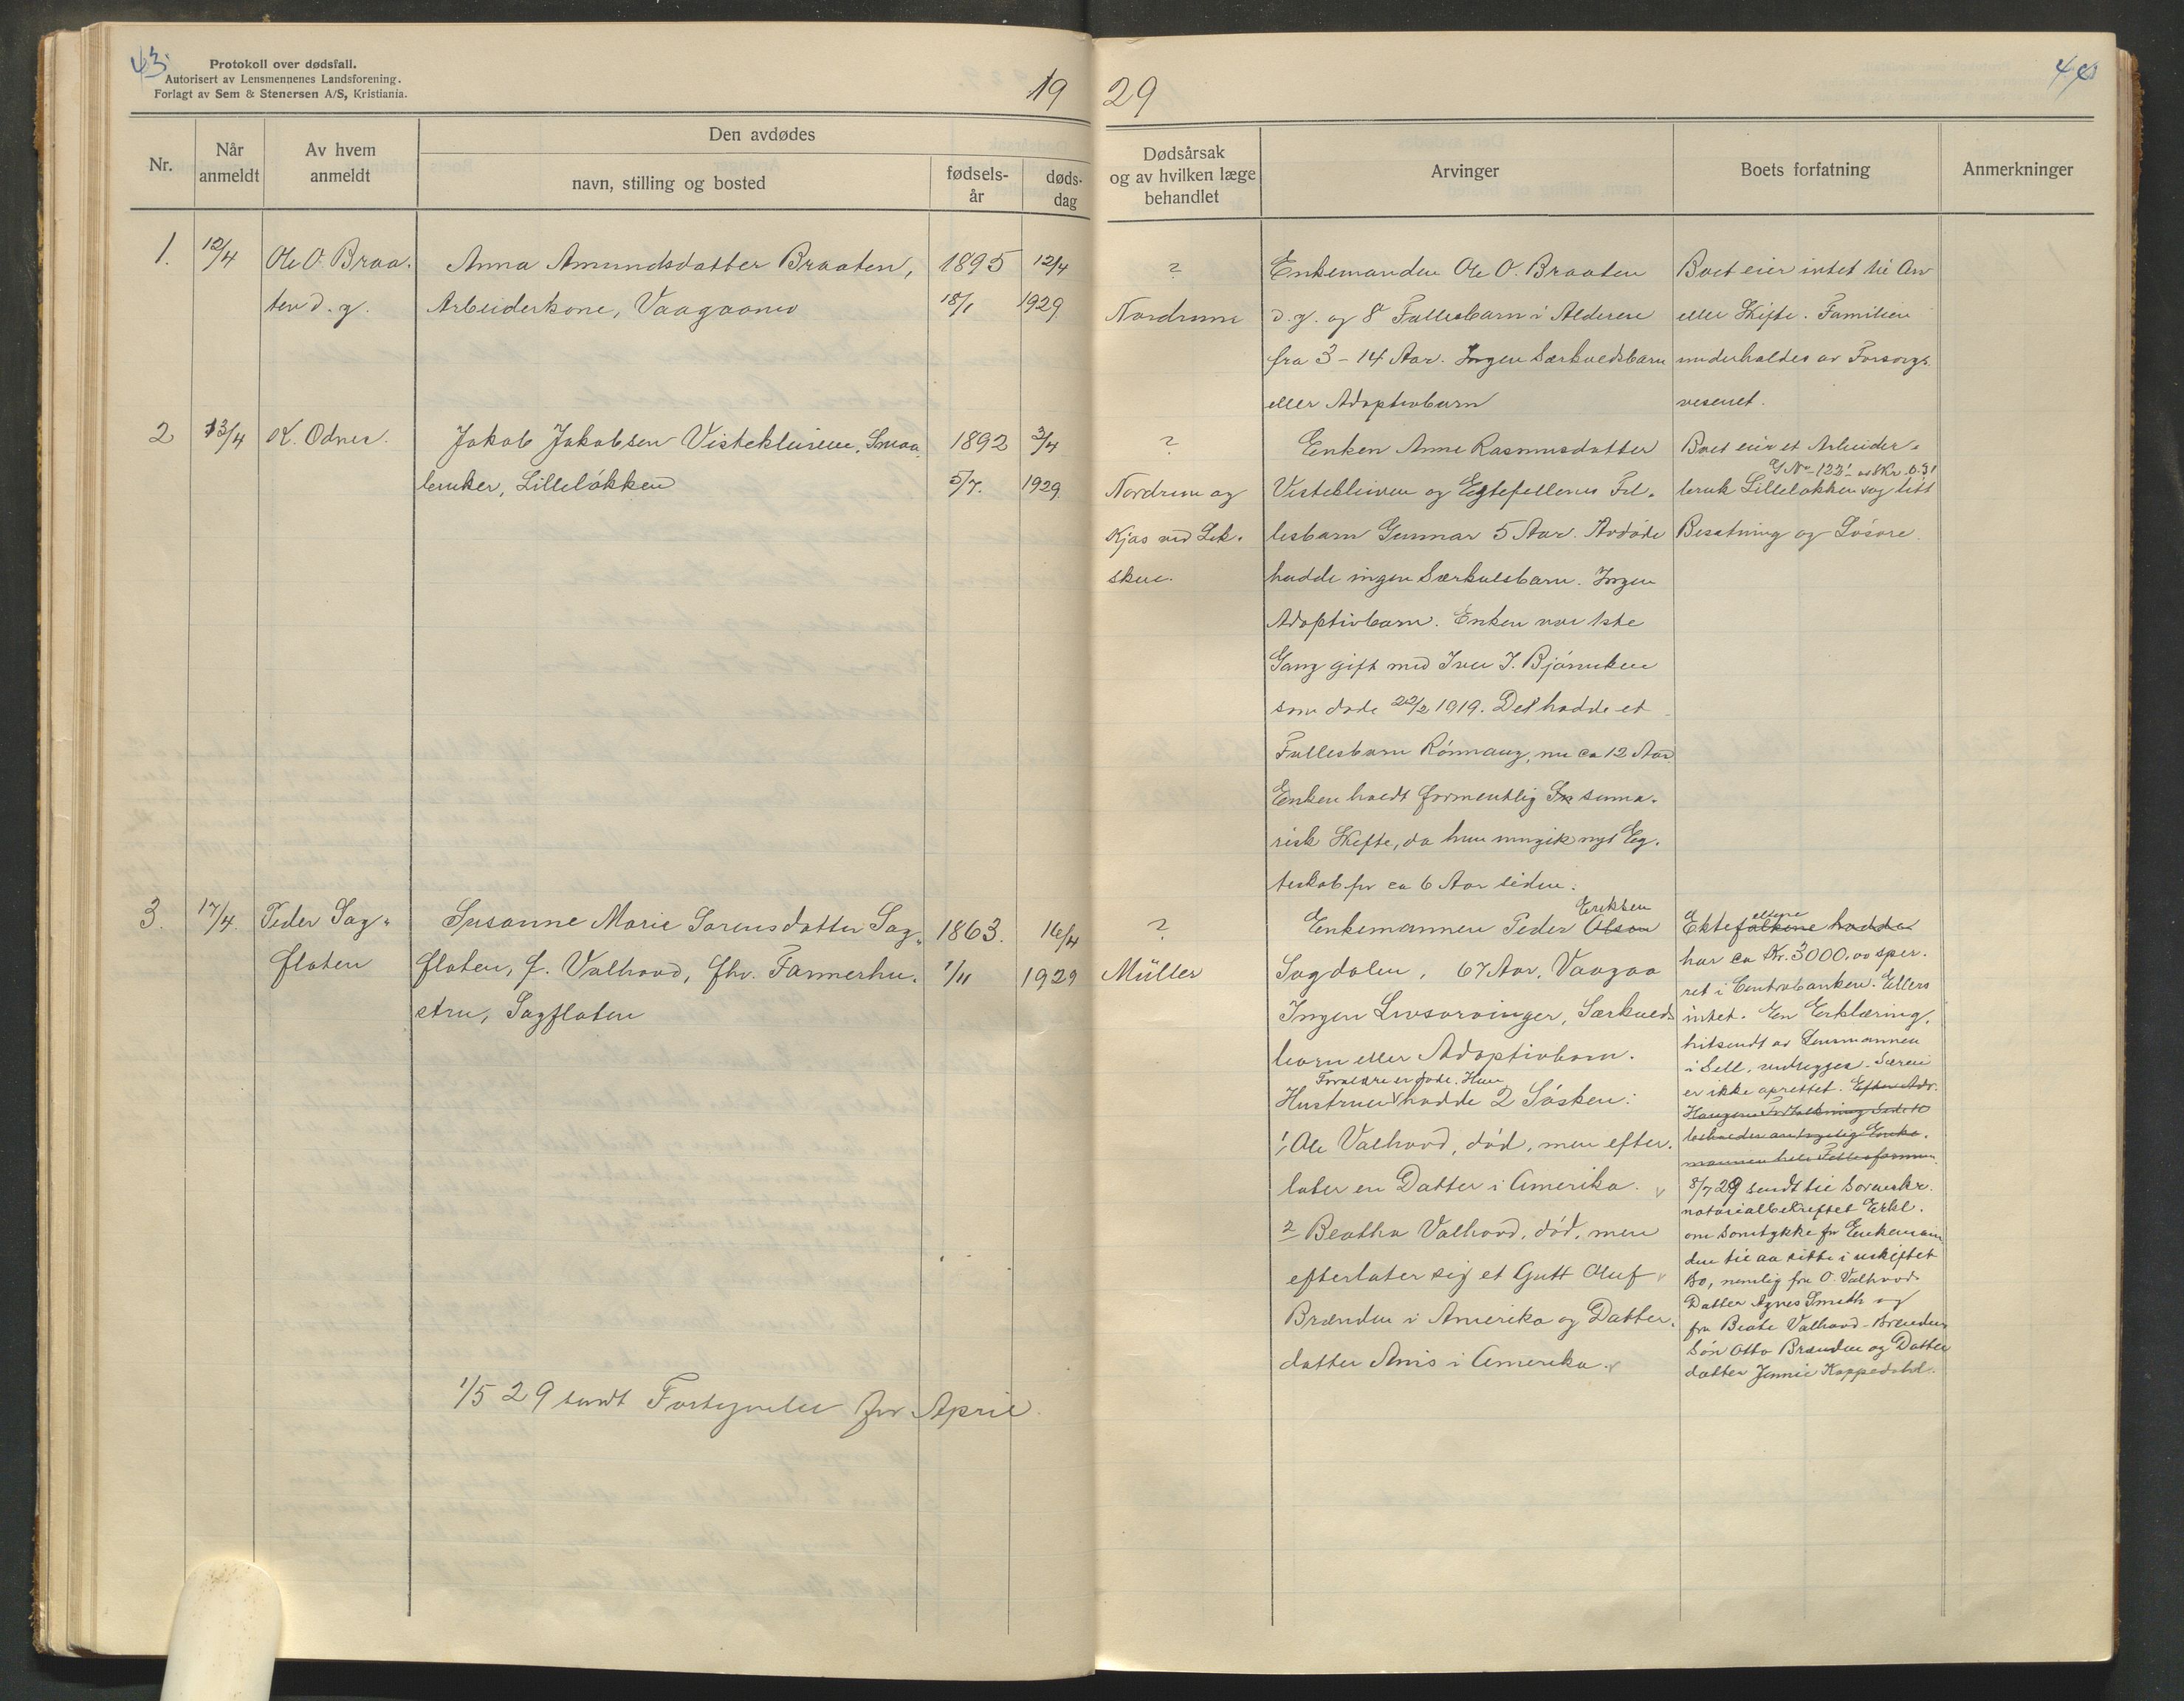 43
Protokoll over dødsfall.
Autorisert av Lensmennenes Landsforening.
Forlagt av Sem & Stenersen A/S, Kristiania.
19
29
Nr.
Når anmeldt
Av hvem anmeldt
Den avdødes
navn, stilling og bosted
fødsels-
år
døds-
dag
Dødsårsak
og av hvilken læge
behandlet
Arvinger
Boets forfatning
Anmerkninger
1.
12/4
Ole O. Braa-
ten d. y.
Anna Amundsdatter Braaten,
Arbeiderkone, Vaagaamo
1895
18/1
12/4
1929
?
Nordrum
Enkemanden Ole O. Braaten
d. y. og 8 Fællesbarn i Alderen
fra 3 - 14 Aar. Ingen Særkuldsbarn
eller Adoptivbarn
Boet eier intet til Arv
eller Skifte. Familien
underholdes av Forsorgs-
vesenet.
2
13/4
K. Odnes.
Jakob Jakobsen Vistekleiven, Smaa-
bruker, Lilleløkken
1892
5/7.
3/4
1929
?
Nordrum og
Kjos ved Lek-
Enken Anne Rasmusdatter
Vistekleiven og Egtefellenes Fel-
lesbarn Gunnar 5 Aar. Avdøde
hadde ingen Særkulsbarn. Ingen
Adoptivbarn. Enken var 1ste
Gang gift med Iver I.
som døde 22/2 1919. De hadde et
Fællesbarn Rønnaug, nu ca 12 Aar
Enken holdt formentlig suma-
risk Skifte, da hun inngik nyt Eg-
teskab for ca 6 Aar siden.
Boet eier et Arbeider-
G No 122 av Skr. 0.31
bruk Lilleløkken og litt
Besætning og Løsøre.
3.
17/4.
Peder Sag-
flaten
Susanne Marie Sørensdatter Sag-
flaten, f. Valhovd, fhv. Farmerhu-
stru, Sagflaten
1863.
1/11
16/4
1929
?
Müller
Eriksen
Enkemannen Peder Olson
Sagdalen, 67 Aar, Vaagaa
Ingen Livsarvinger, Særkulds
barn eller Adoptivbarn.
Foreldre er døde. Hun
Hustruen hadde 2 Søsken:
1, Ole Valhovd, død, men efter-
later en Datter i Amerika.
2 Beatha Valhovd, død, men
efterlater sig et Gutt Oluf
Brænden i Amerika og Datter-
datter Anis i Amerika.
Ektefolkene hadde
har ca Kr. 3000,00 spar-
ret i Centralbanken. Ellers
intet. En Erklæring,
hitsendt av Lensmannen
i Sell, vedlegges.
er ikke oprettet.
8/7 29 sendt til Sorenskr.
notarialbekreftet Erkl.
om Samtykke for Enkeman
den til aa sitte i uskiftet
Bo, nemlig fra O. Valhovds
Datter Agnes Smith og
fra Beate Valhovd - Brænden
Søn Otto Brænden og Datter
datter Jennie
1/5 29 sendt Fortegnelse for April.